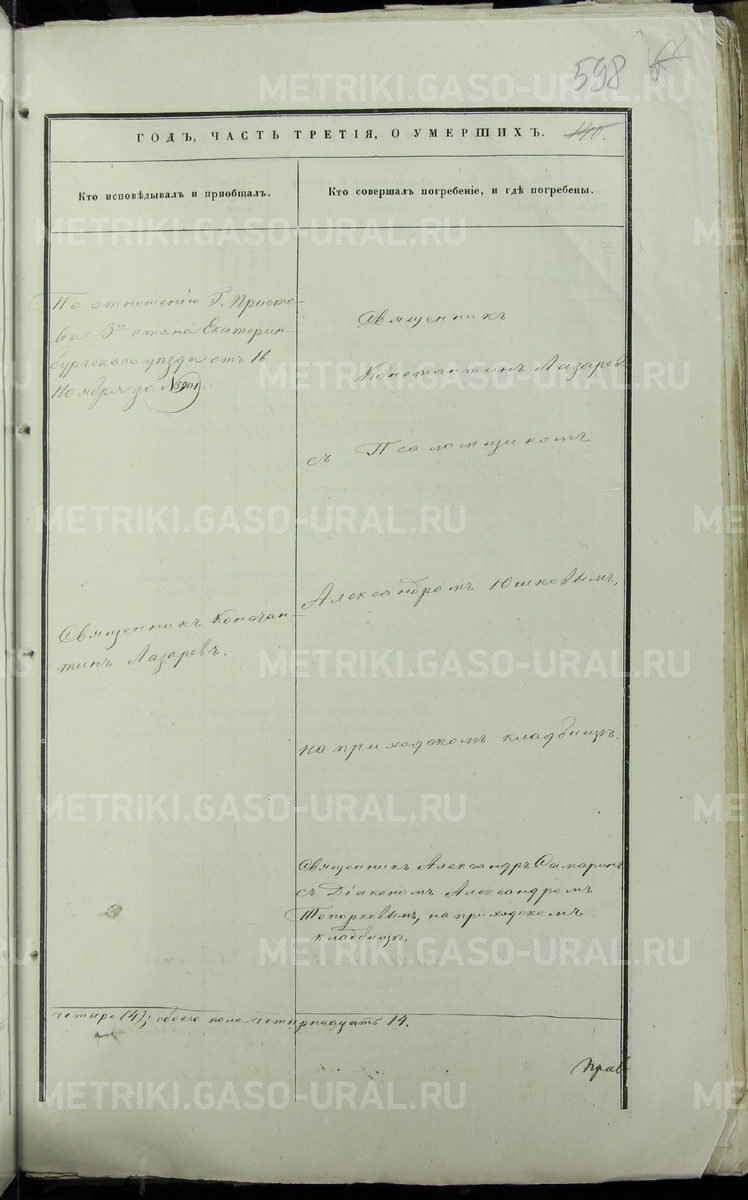 598
ГОДЪ, ЧАСТЬ ТРЕТІЯ, О УМЕРШИХЪ.
140.
Кто исповѣдывалъ и пріобщалъ.
По отношенію Г. Приста-
ва 3го стана Екатерин-
бургскаго уѣзда отъ 16
Ноября за №
Священникъ Констан-
тинъ Лазаревъ.
Кто совершалъ погребеніе, и гдѣ погребены.
Священникъ
Константинъ Лазаревъ
съ Псаломщикомъ
Александромъ Юшковымъ,
на приходскомъ кладбищѣ.
Священникъ Александръ Самаринъ
съ Діакономъ Александромъ
Топорковымъ, на приходскомъ
кладбищѣ.
четыре (4); обоего пола четырнадцать 14.
Прав
METRIKI.GASO-URAL.RU